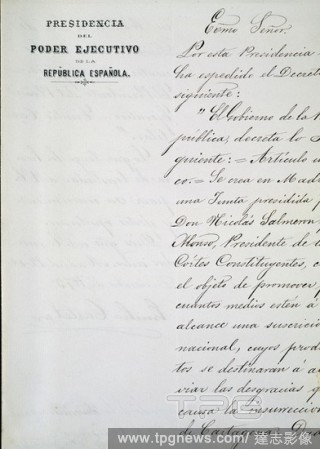 PRESIDENCIA
DEL
PODER EJECUTIVO
DE LA
REPÚBLICA ESPAÑOLA.
Exmo Señor.
Por esta Presidencia
ha espedido el Decret
siguiente:
"El Gobierno de la
pública, decreta lo
guiente: = Artículo
co: = Se crea en Mad
una Junta presidida
Don Nicolás Salmeron
Alonso, Presidente de
Córtes Constituyentes,
el objeto de promover
cuantos medios estén á
alcance una suscrici
nacional, cuyos prod
tos se destinaran á
viar las desgracias q
causa la insurreccio
de Cartagena
TPG
www.tpgnews.com / 達志影像